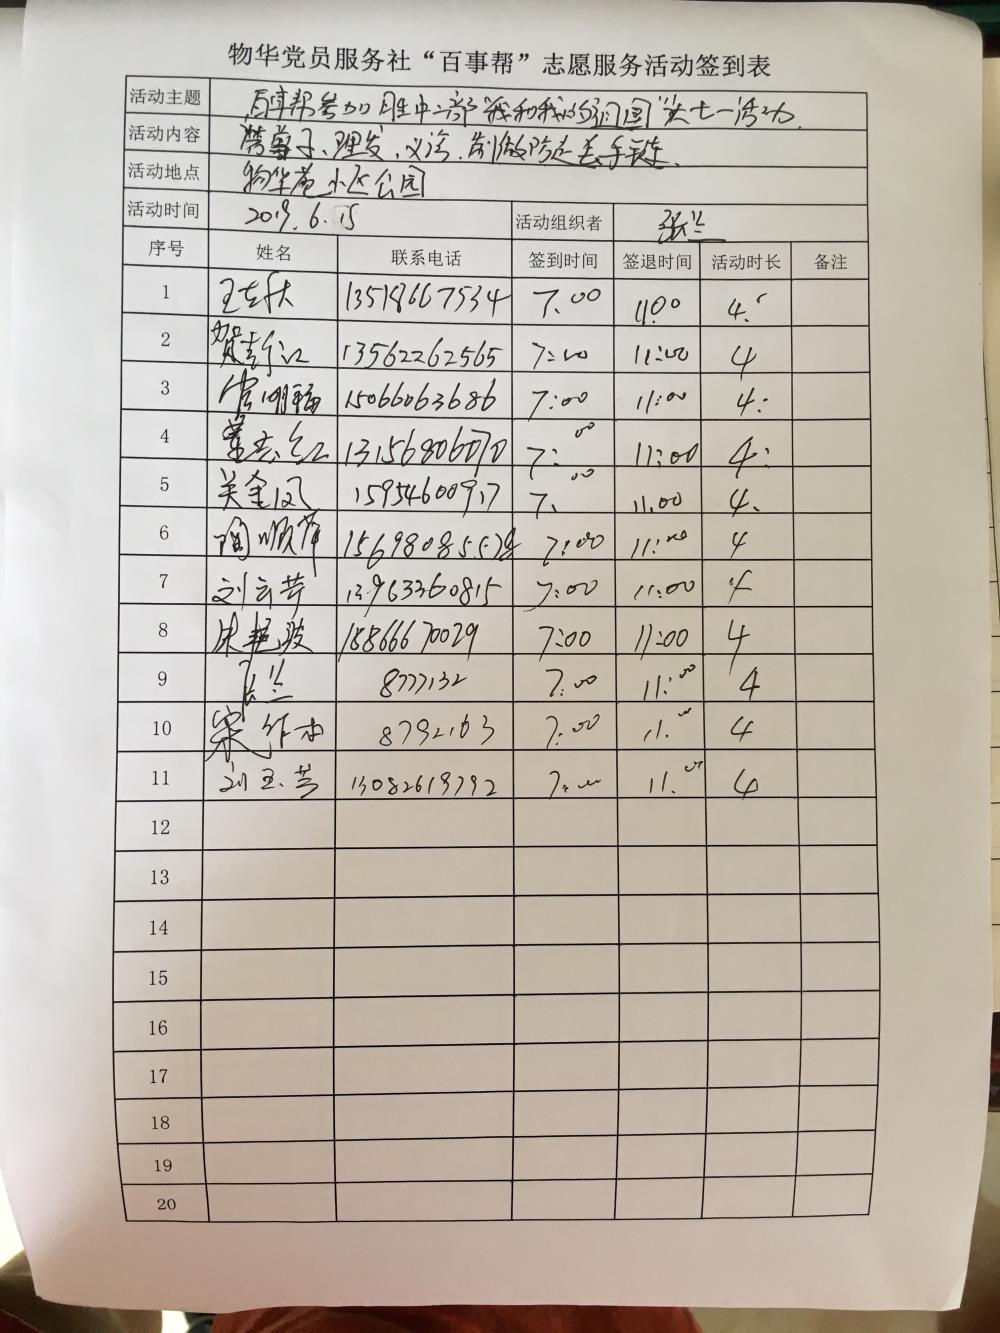 物华党员服务社“百事帮”志愿服务活动签到表
活动主题 百事帮参加胜中二部“我和我的祖国”庆七一活动.
活动内容 磨剪子、理发、义诊、制做防走丢手链.
活动地点 物华苑小区公园
活动时间 2019.6.15 活动组织者 张兰
序号 姓名 联系电话 签到时间 签退时间 活动时长 备注
1 13518667534 7:00 11:00 4
2 13562262565 7:00 11:00 4
3 15066063686 7:00 11:00 4
4 13156806070 7:00 11:00 4
5 关金凤 15954600917 7:00 11:00 4
6 陶顺萍 7:00 11:00 4
7 刘云芳 13963360815 7:00 11:00 4
8 宋艳玲 18866670029 7:00 11:00 4
9 张兰 8777132 7:00 11:00 4
10 宋作本 8792163 7:00 11:00 4
11 刘玉芳 13082619792 7:00 11:00 4
12
13
14
15
16
17
18
19
20